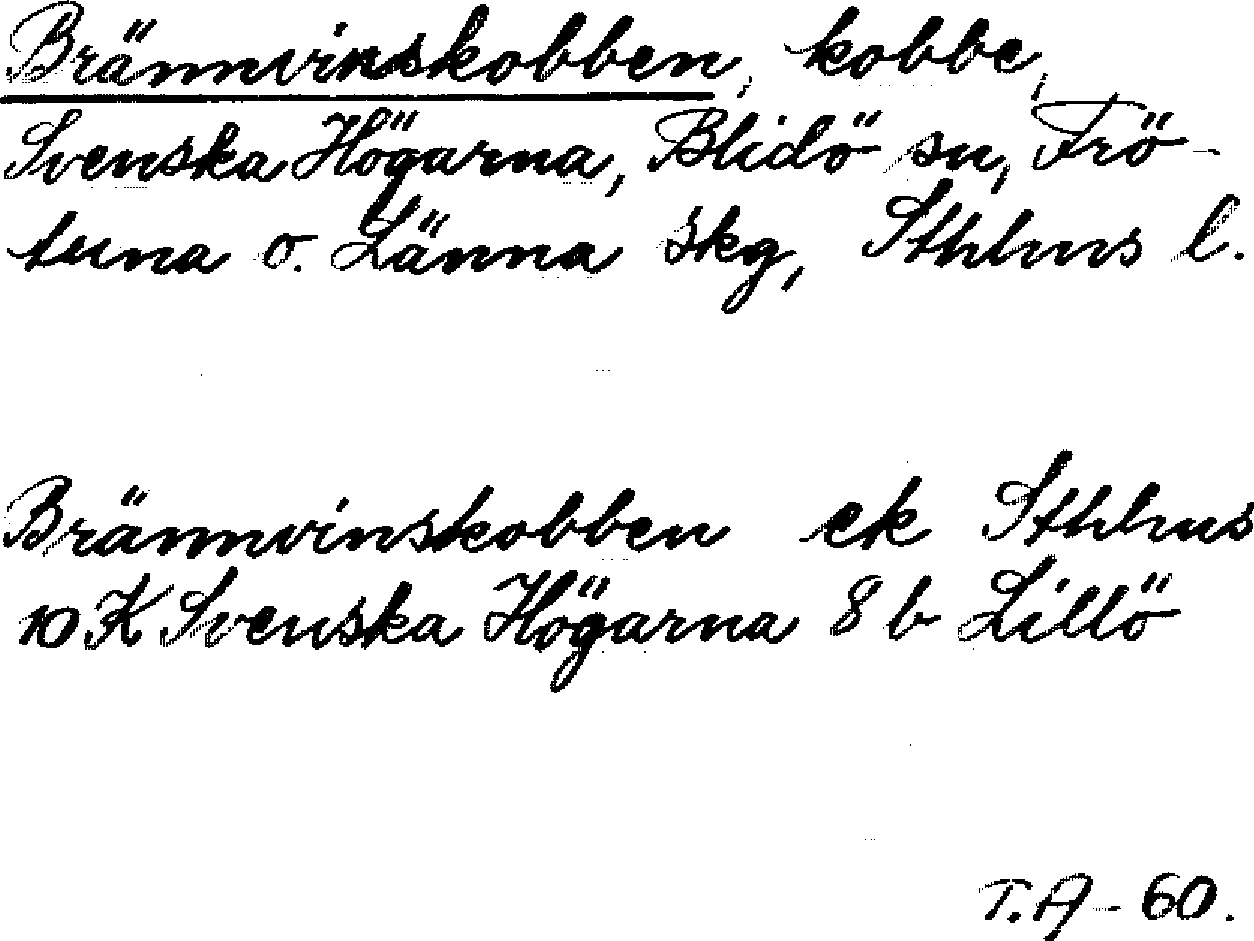 Brännvinskobben, kobbe,
Svenska Högarna, Blidö sn, Frö-
tuna o. Länna skg, Sthlms l.
Brännvinskobben ek Sthlms
10 K Svenska Högarna 8 b Lillö
T.A - 60.